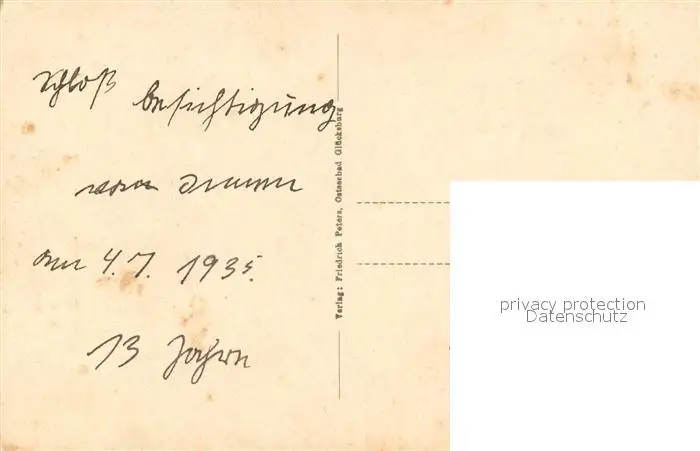 Schloß besichtigung
von innen
am 4.7. 1935.
13 Jahre
Verlag: Friedrich Peters, Ostseebad Glücksburg
privacy protection
Datenschutz